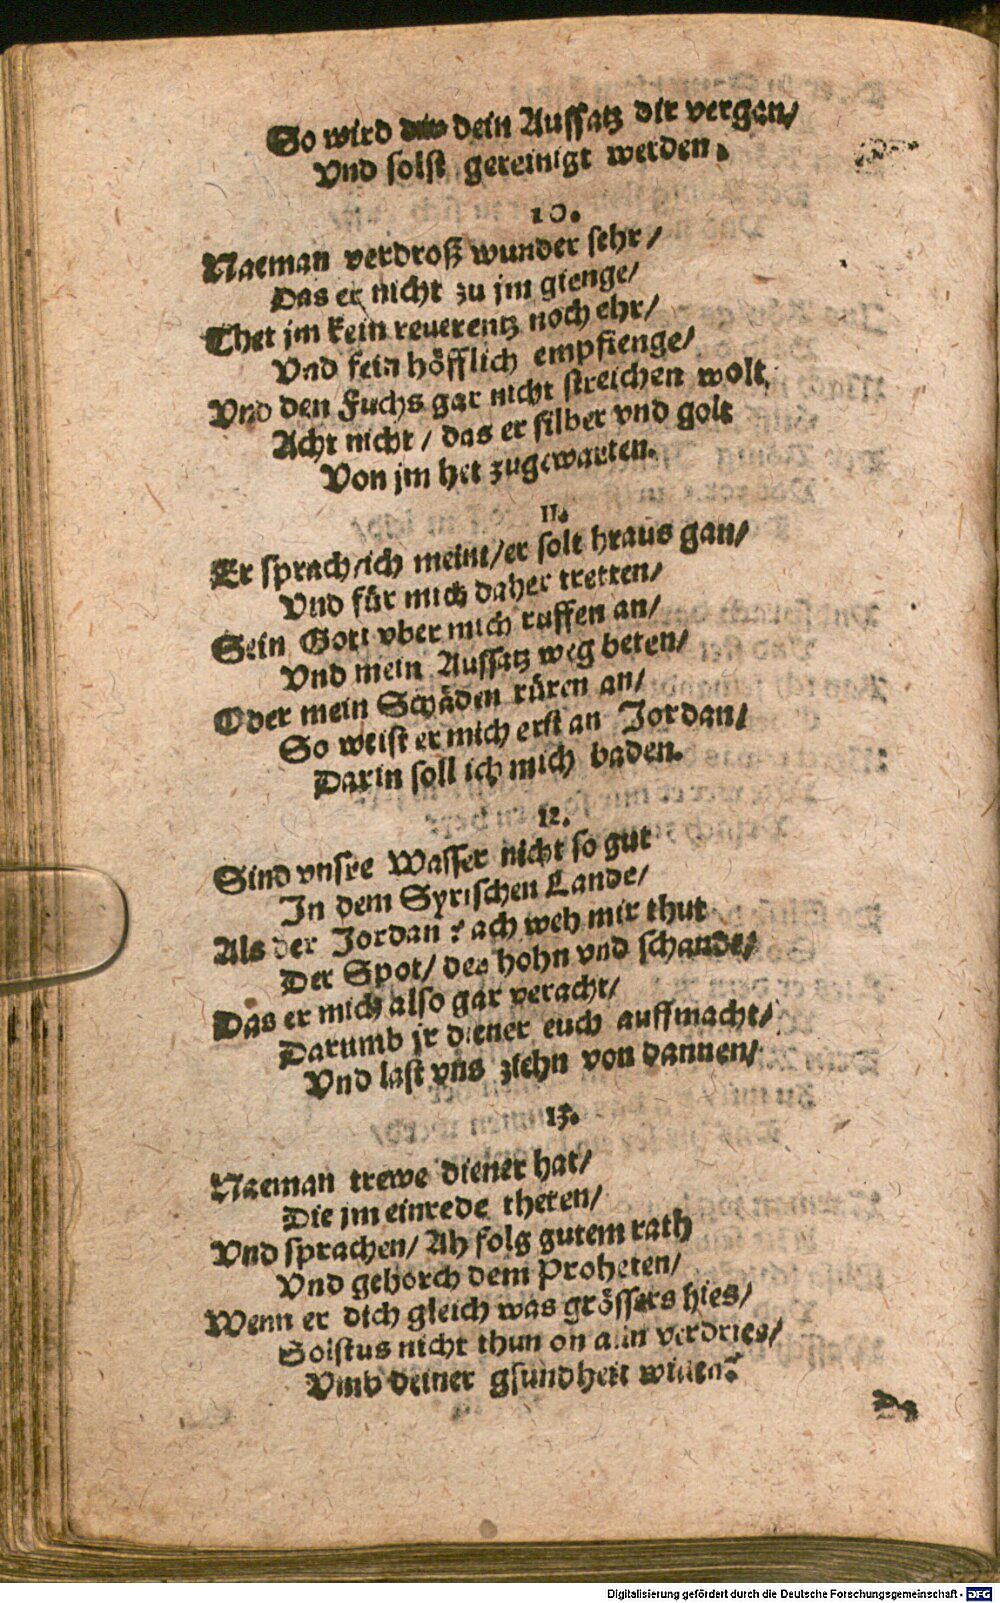 So wird dein Aussatz dir vergan/
Vnd solst gereinigt werden.
10.
Naeman verdroß wunder sehr/
Das er nicht zu jm gienge/
Thet jm kein reuerentz noch ehr/
Vnd fein höfflich empfienge/
Vnd den Fuchs gar nicht streichen wolt,
Acht nicht / das er silber vnd golt
Von jm het zugewarten.
11.
Er sprach/ich meint/er solt hraus gan/
Vnd für mich daher tretten/
Sein Gott vber mich ruffen an/
Vnd mein Aussatz weg beten/
Oder mein Schäden rüren an/
So weist er mich erst an Jordan/
Darin soll ich mich baden.
12.
Sind vnsre Wasser nicht so gut
In dem Syrischen Lande/
Als der Jordan? ach weh mir thut
Der Spot/ der hohn vnd schande/
Das er mich also gar veracht/
Darumb jr diener euch auffmacht/
Vnd last vns ziehn von dannen/
13.
Naeman trewe diener hat/
Die jm einrede theten/
Vnd sprachen/ Ah folg gutem rath
Vnd gehorch dem Proheten/
Wenn er dich gleich was grössers hies/
Solstus nicht thun on alln verdries/
Vmb deiner gsundheit willen?
Da
Digitalisierung gefördert durch die Deutsche Forschungsgemeinschaft - DFG